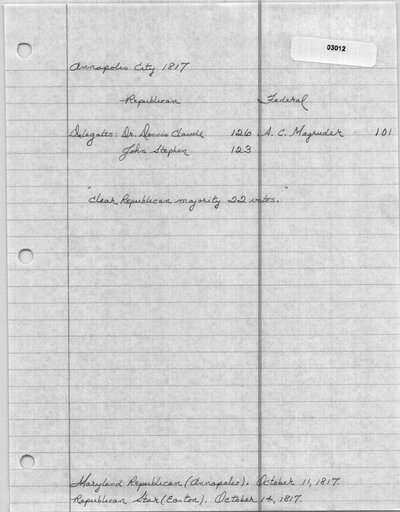 03012
Annapolis City 1817
Republican Federal
Delegates: Dr. Dennis Claude 126 A. C. Magruder 101
John Stephen 123
"Clear Republican majority 22 votes."
Maryland Republican (Annapolis). October 11, 1817.
Republican Star (Easton). October 14, 1817.